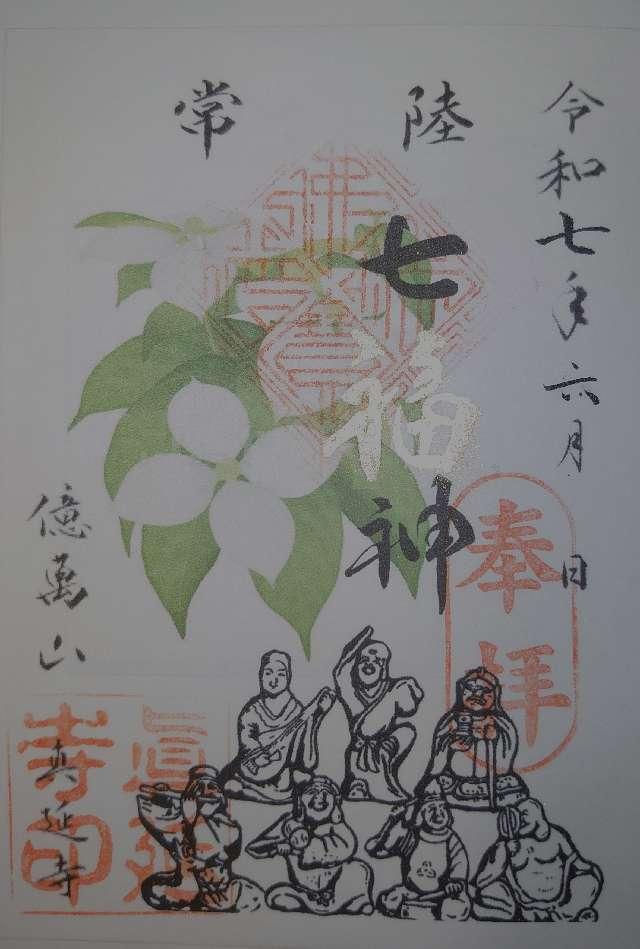 令和七年六月 日
奉拝
常陸
七福神
億萬山
真延寺
眞延寺印